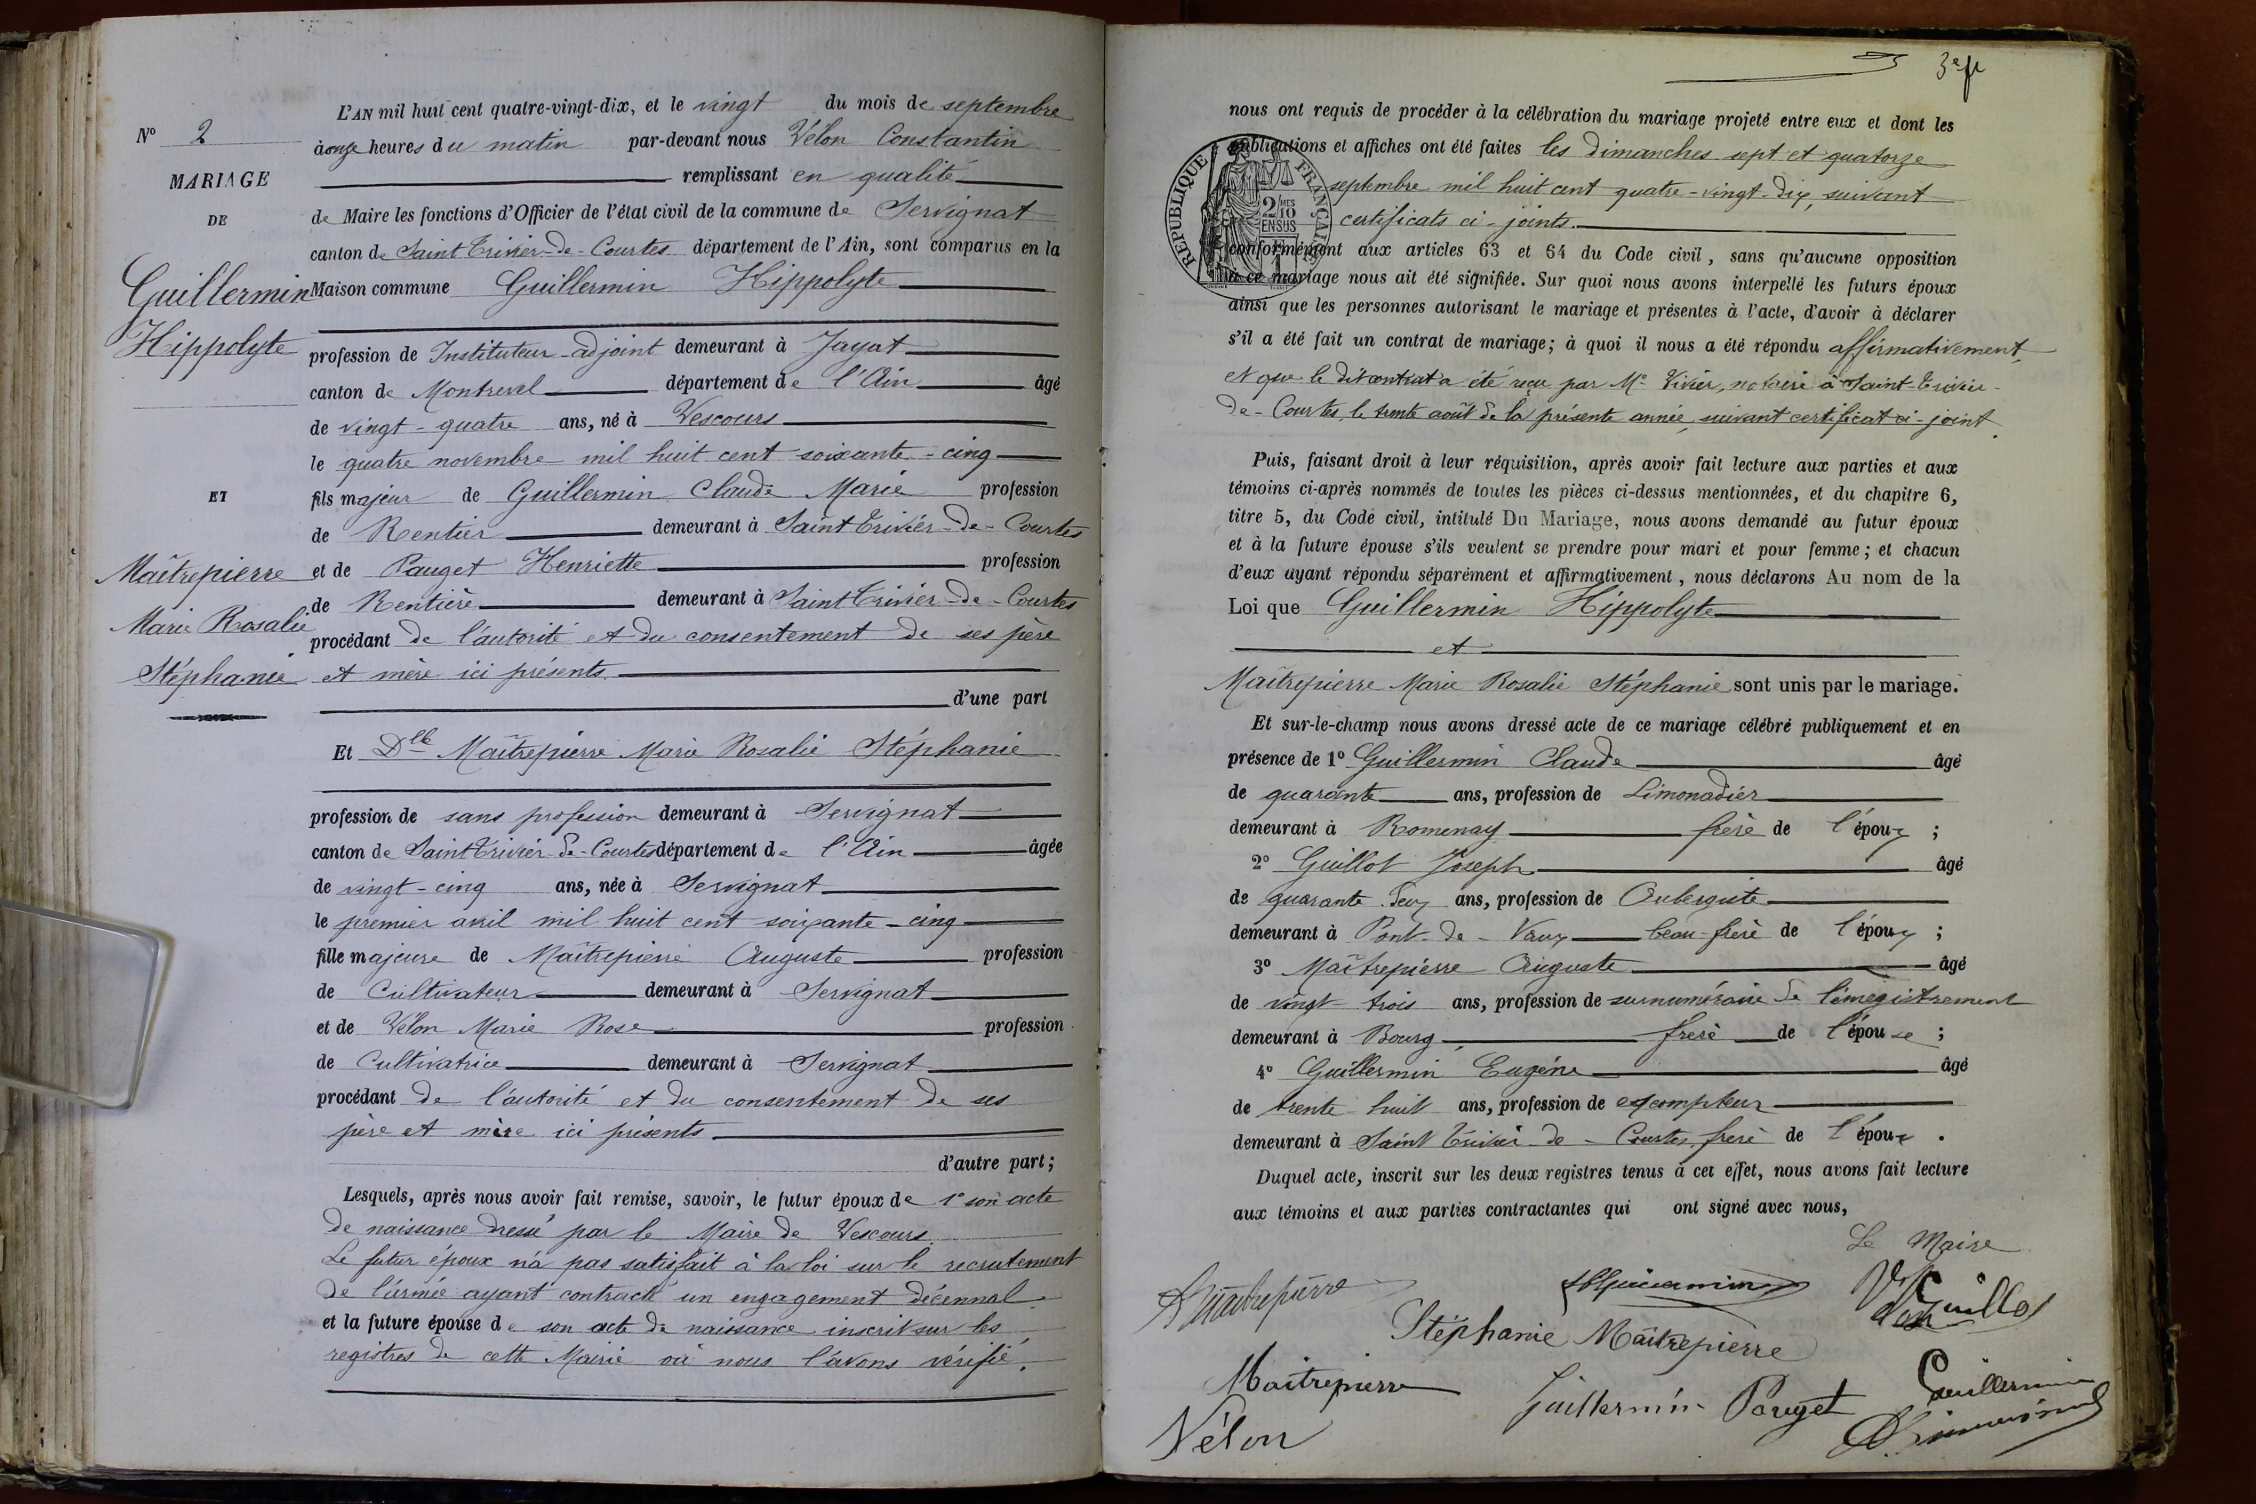 L'AN mil huit cent quatre-vingt-dix, et le vingt du mois de septembre
à onze heures du matin par-devant nous Vélon Constantin
remplissant en qualité
de Maire les fonctions d'Officier de l'état civil de la commune de Servignat
canton de Saint Trivier-de-Courtes département de l'Ain, sont comparus en la
Maison commune Guillermin Hippolyte
profession de Instituteur-adjoint demeurant à Jayat
canton de Montrevel département de l'Ain âgé
de vingt-quatre ans, né à Vescours
le quatre novembre mil huit cent soixante-cinq
fils majeur de Guillermin Claude Marie profession
de Rentier demeurant à Saint Trivier-de-Courtes
et de Pauget Henriette profession
de Rentière demeurant à Saint Trivier-de-Courtes
procédant de l'autorité et du consentement de ses père
et mère ici présents.
d'une part
Et Dlle Maîtrepierre Marie Rosalie Stéphanie
profession de sans profession demeurant à Servignat
canton de Saint Trivier-de-Courtes département de l'Ain âgée
de vingt-cinq ans, née à Servignat
le premier avril mil huit cent soixante-cinq
fille majeure de Maîtrepierre Auguste profession
de Cultivateur demeurant à Servignat
et de Vélon Marie Rose profession
de Cultivatrice demeurant à Servignat
procédant de l'autorité et du consentement de ses
père et mère ici présents.
d'autre part;
Lesquels, après nous avoir fait remise, savoir, le futur époux de 1° son acte
de naissance dressé par le Maire de Vescours.
Le futur époux n'a pas satisfait à la loi sur le recrutement
de l'armée ayant contracté un engagement décennal.
et la future épouse de son acte de naissance inscrit sur les
registres de cette Mairie où nous l'avons vérifié.
N° 2
MARIAGE
DE
Guillermin
Hippolyte
ET
Maîtrepierre
Marie Rosalie
Stéphanie
3e
nous ont requis de procéder à la célébration du mariage projeté entre eux et dont les
publications et affiches ont été faites les dimanches sept et quatorze
septembre mil huit cent quatre-vingt-dix, suivant
certificats ci-joints.
RÉPUBLIQUE FRANÇAISE
2 MES
10
EN SUS
conformément aux articles 63 et 64 du Code civil, sans qu'aucune opposition
à ce mariage nous ait été signifiée. Sur quoi nous avons interpellé les futurs époux
ainsi que les personnes autorisant le mariage et présentes à l'acte, d'avoir à déclarer
s'il a été fait un contrat de mariage; à quoi il nous a été répondu affirmativement,
et que le dit contrat a été reçu par Me Vivier, notaire à Saint-Trivier-
de-Courtes, le trente août de la présente année, suivant certificat ci-joint.
Puis, faisant droit à leur réquisition, après avoir fait lecture aux parties et aux
témoins ci-après nommés de toutes les pièces ci-dessus mentionnées, et du chapitre 6,
titre 5, du Code civil, intitulé Du Mariage, nous avons demandé au futur époux
et à la future épouse s'ils veulent se prendre pour mari et pour femme; et chacun
d'eux ayant répondu séparément et affirmativement, nous déclarons Au nom de la
Loi que Guillermin Hippolyte
et
Maîtrepierre Marie Rosalie Stéphanie sont unis par le mariage.
Et sur-le-champ nous avons dressé acte de ce mariage célébré publiquement et en
présence de 1° Guillermin Claude âgé
de quarante ans, profession de Limonadier
demeurant à Romenay frère de l'époux;
2° Guillot Joseph âgé
de quarante deux ans, profession de Aubergiste
demeurant à Pont-de-Vaux beau-frère de l'époux;
3° Maîtrepierre Auguste âgé
de vingt-trois ans, profession de surnuméraire de l'enregistrement
demeurant à Bourg, frère de l'épouse;
4° Guillermin Eugène âgé
de trente huit ans, profession de escompteur
demeurant à Saint Trivier-de-Courtes, frère de l'époux.
Duquel acte, inscrit sur les deux registres tenus à cet effet, nous avons fait lecture
aux témoins et aux parties contractantes qui ont signé avec nous,
Le Maire
A Maitrepierre
H Guillermin
Guillot
Stéphanie Maîtrepierre
Maîtrepierre
Guillermin
Pauget
Guillermin
Vélon